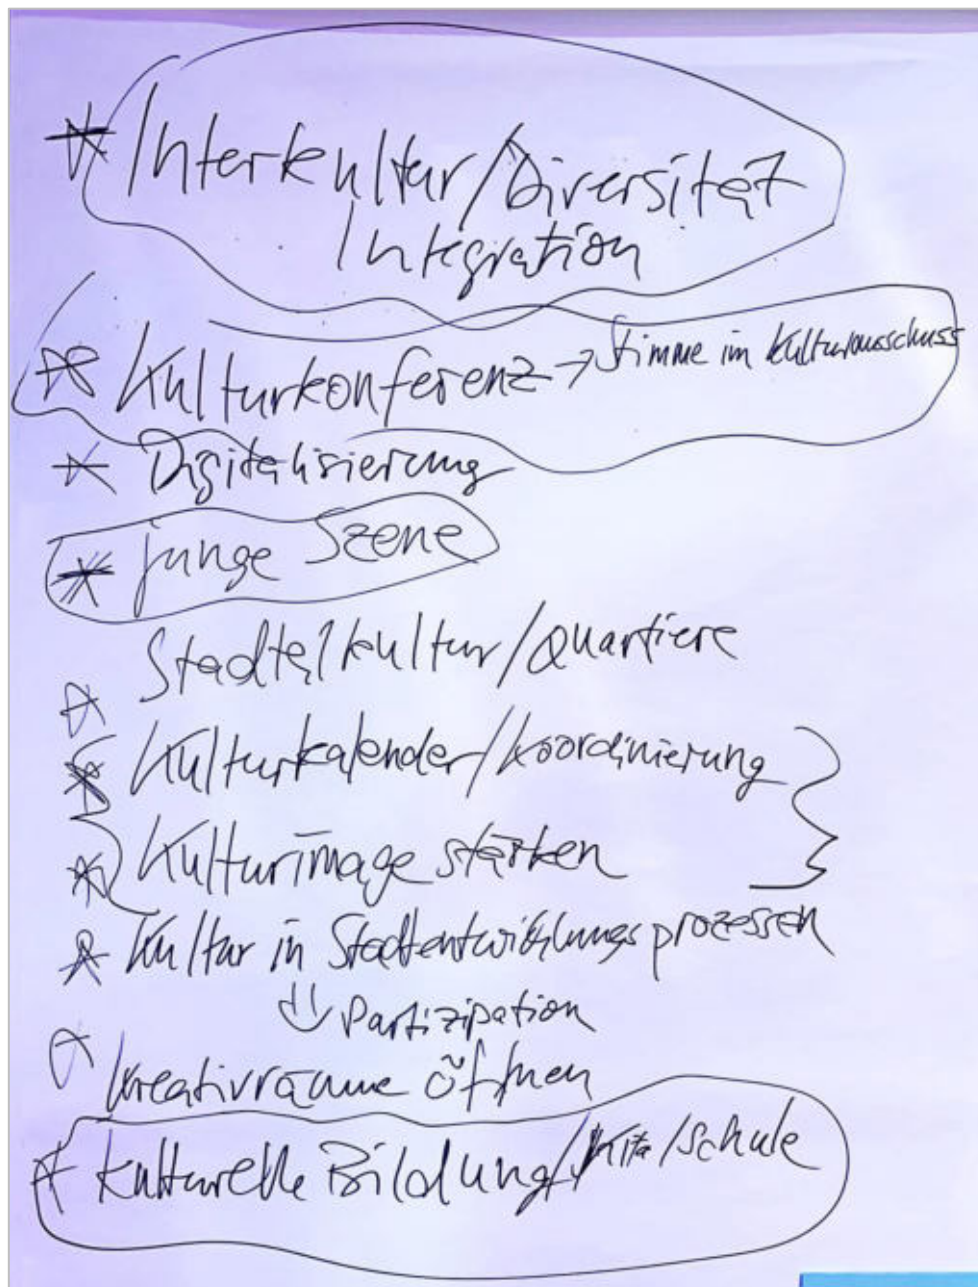 * Interkultur/Diversität
Integration
* Kulturkonferenz → Stimme im Kulturausschuss
* Digitalisierung
* junge Szene
Stadtteilkultur/Quartiere
* Kulturkalender/Koordinierung
* Kulturimage stärken
* Kultur in Stadtentwicklungsprozessen
⇓ Partizipation
* Kreativräume öffnen
* kulturelle Bildung/Kita/Schule